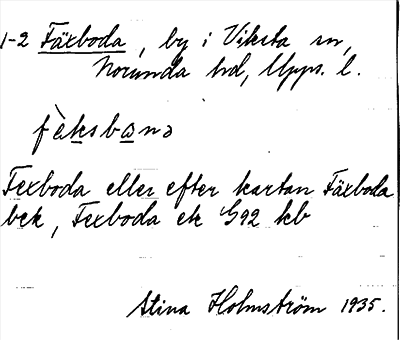 1-2 Fäxboda, by i Viksta sn,
Norunda hd, Upps. l.
fὲksbɷnə
Fexboda eller efter kartan Fäxboda
bek, Fexboda ek G92 kb
Stina Holmström 1935.